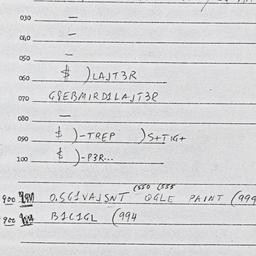 030 —
040 —
050 —
060 $ )LAJT3R
070 GSEBMIRD1LAJT3R
080 —
090 $ )-TREP )S+TIG+
100 $ )-P3R...
(550 (555
900 O.SG1VAJSNT OGLE PAINT (999
900 B1C1GL (994